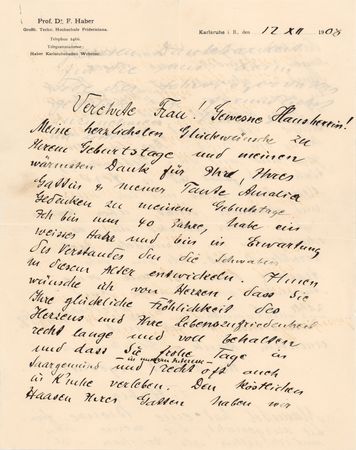 Prof. Dr. F. Haber
Großh. Techn. Hochschule Fridericiana.
Telephon 2466.
Telegrammadresse:
Haber Karlsruhebaden
Karlsruhe i. B., den 12 XII 1908
Verehrte Frau! Gewesene Hausherrin!
Meine herzlichsten Glückwünsche zu
Ihrem Geburtstage und meinen
wärmsten Dank für Ihr, Ihres
Gatten & meiner Tante Amalie
Gedenken zu meinem Geburtstage.
Ich bin nun 40 Jahre, habe ein
weisses Haar und bin in Erwartung
des Verstandes den die Schwaben
in diesem Alter entwickeln. Ihnen
wünsche ich von Herzen, dass Sie
Ihre glückliche Fröhlichkeit des
Herzens und Ihre Lebenszufriedenheit
recht lange und voll behalten
und dass Sie frohe Tage in
Saargemünd und, recht oft auch
in K'ruhe verleben. Den köstlichen
Haasen Ihres Gatten haben wir